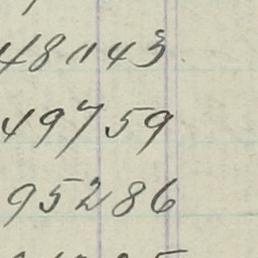 48143
49759
95286